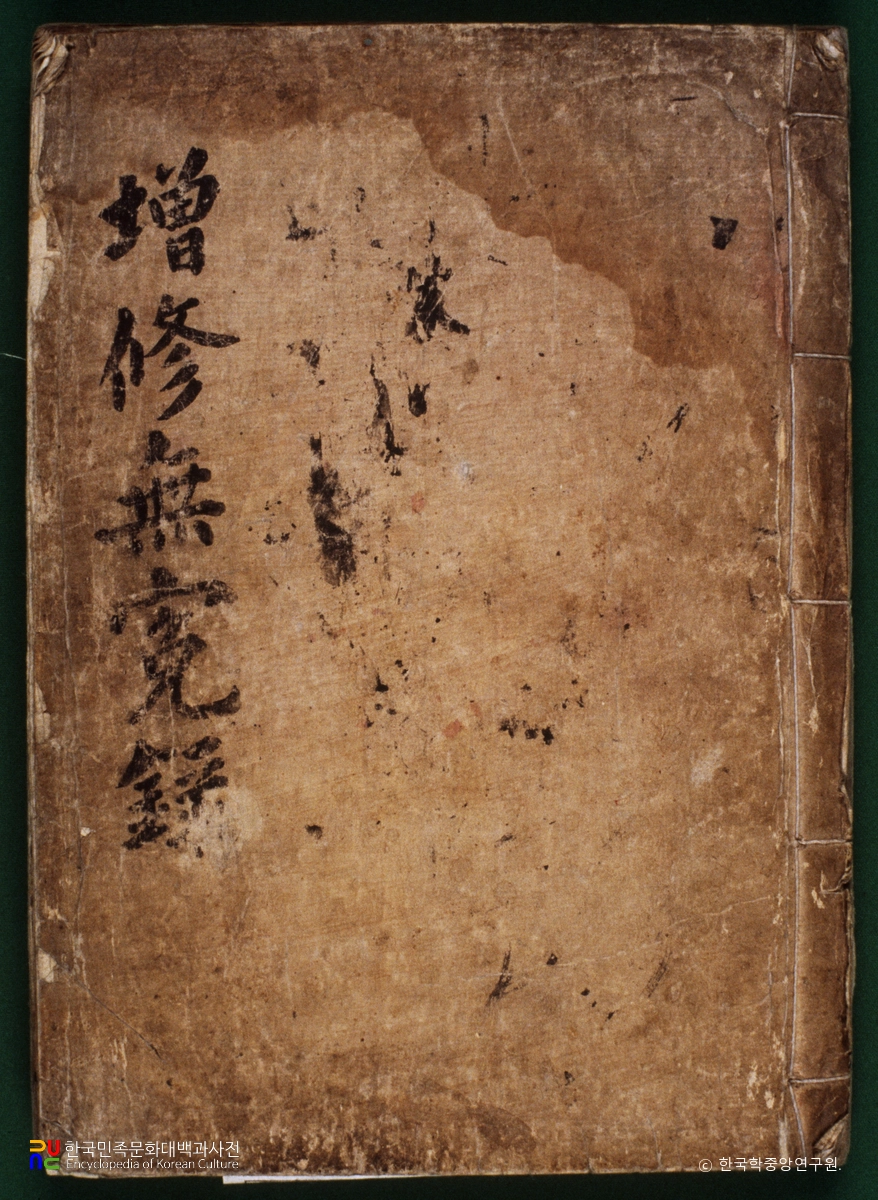 增修無寃錄
한국민족문화대백과사전
Encyclopedia of Korean Culture
© 한국학중앙연구원.